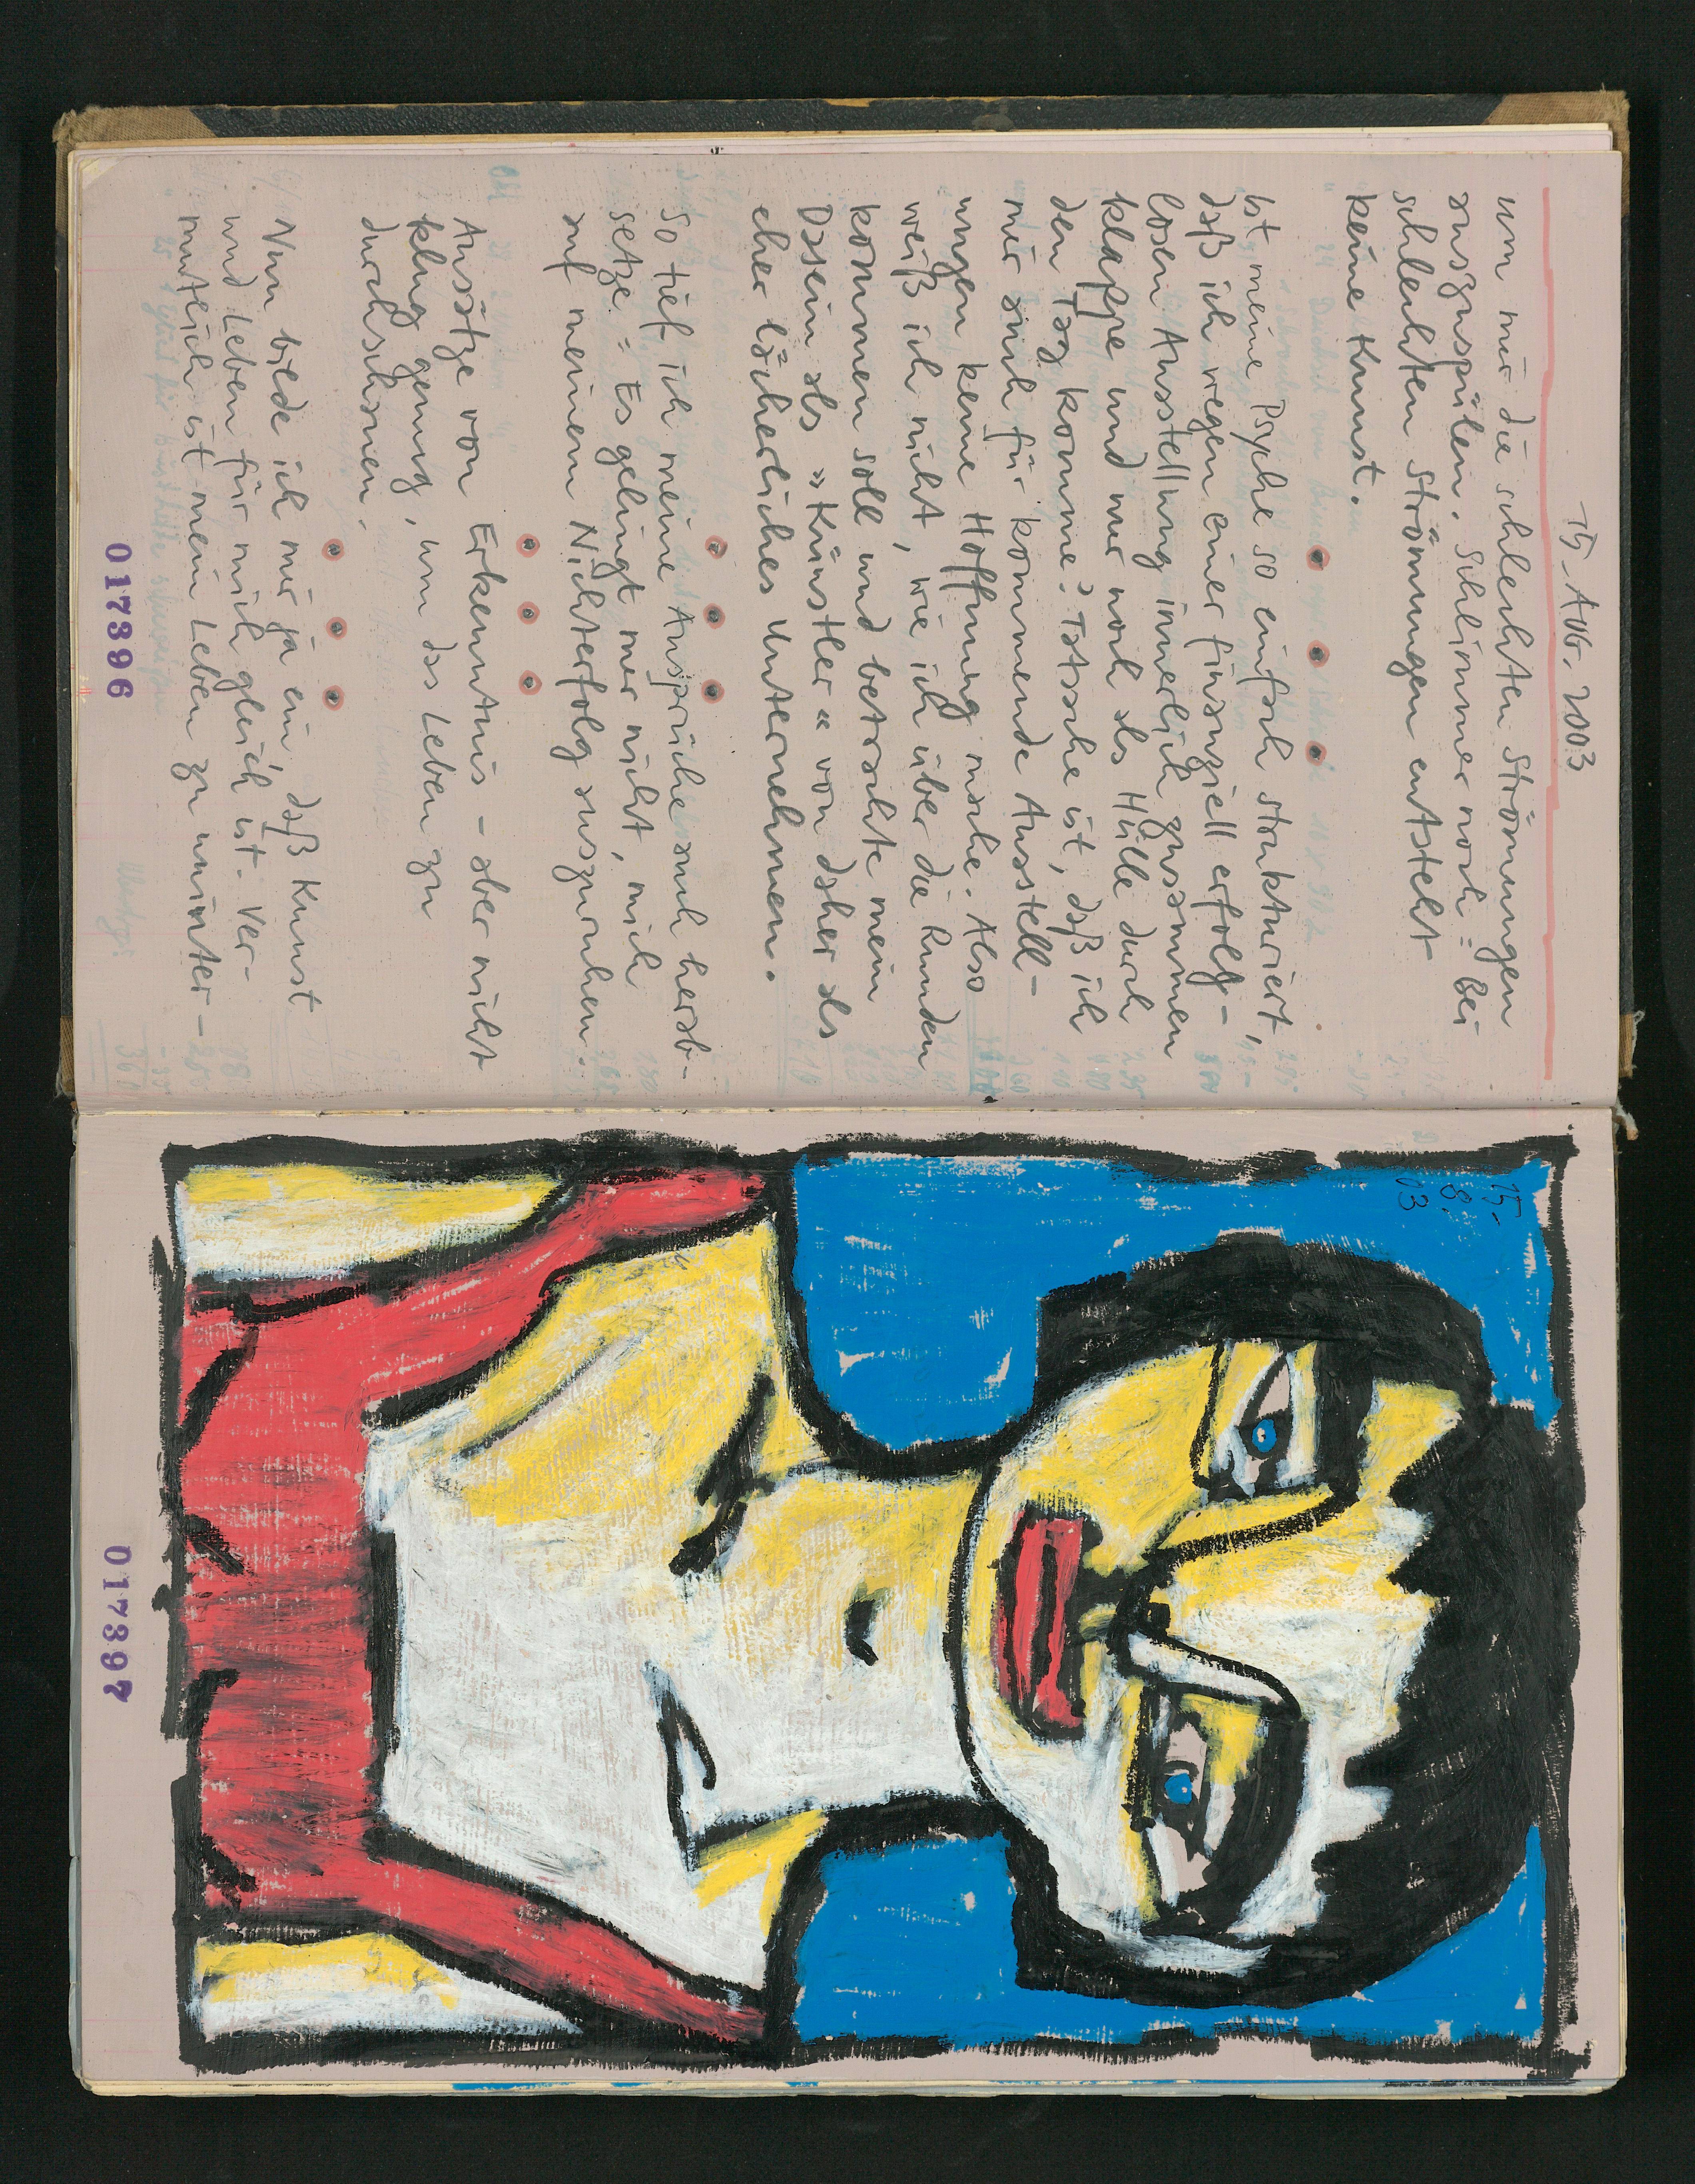 15. AUG. 2003
um mir die schlechten Strömungen
auszuspülen. Schlimmer noch: Bei
schlechten Strömungen entsteht
keine Kunst.
Ist meine Psyche so einfach strukturiert,
daß ich wegen einer finanziell erfolg-
losen Ausstellung innerlich zusammen
klappe und nur noch als Hülle durch
den Tag komme? Tatsache ist, daß ich
mir auch für kommende Ausstell-
ungen keine Hoffnung mache. Also
weiß ich nicht, wie ich über die Runden
kommen soll und betrachte mein
Dasein als »Künstler« von daher als
eher lächerliches Unternehmen.
So tief ich meine Ansprüche auch herab-
setze: Es gelingt mir nicht, mich
auf meinem Nichterfolg auszuruhen.
Ansätze von Erkenntnis – aber nicht
klug genug, um das Leben zu
durchschauen.
Nun bilde ich mir ja ein, daß Kunst
und Leben für mich gleich ist. Ver-
mutlich ist mein Leben zu munter-
017396
15.
8.
03
017397